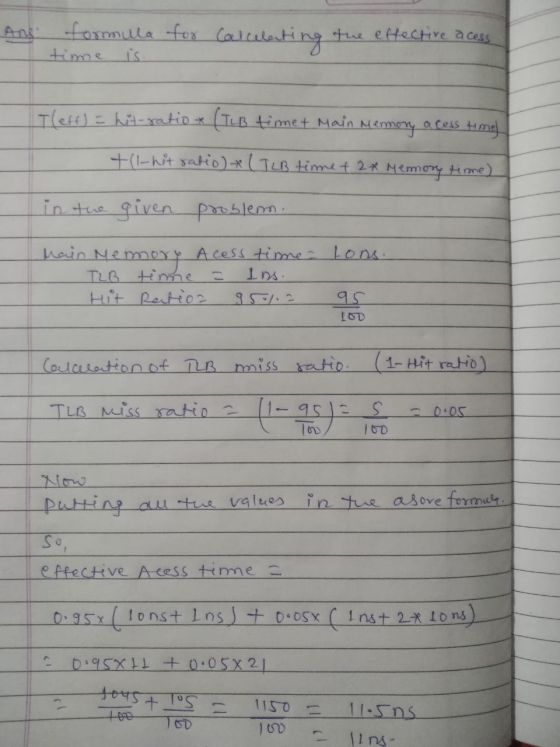 Ans: formula for Calculating the effective acess
time is
T(eff) = hit-ratio * (TLB time + Main Memory acess time)
+ (1-hit ratio) * (TLB time + 2* Memory time)
in the given problem.
Main Memory Acess time = 10ns.
TLB time = 1ns.
Hit Ratio = 95% = 95/100
Calculation of TLB miss ratio. (1-Hit ratio)
TLB Miss ratio = (1 - 95/100) = 5/100 = 0.05
Now
Putting all the values in the above formula.
So,
effective Acess time =
0.95 x (10ns + 1ns) + 0.05 x (1ns + 2* 10ns)
= 0.95 x 11 + 0.05 x 21
= 1045/100 + 105/100 = 1150/100 = 11.5ns
= 11ns.